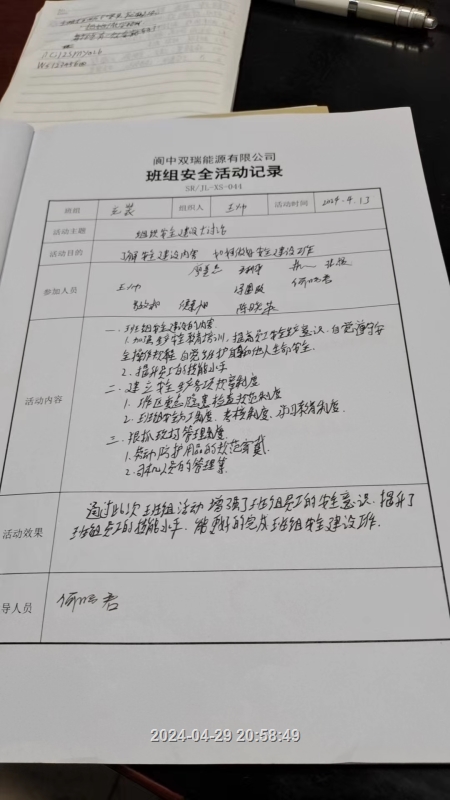 阆中双瑞能源有限公司
班组安全活动记录
SR/JL-XS-044
班组 组织人 王帅 活动时间 2024.4.13
活动主题 班组安全建设大讨论
活动目的 了解安全建设内容 如何做好安全建设工作
参加人员 王帅
活动内容
一、班组安全建设的内容
1.加强生产安全教育培训，提高员工安全生产意识，自觉遵守安
全操作规程，自觉维护自身和他人生命安全。
2.提升员工的技能水平
二、建立安全生产各项规章制度
1.班区隐患检查规范制度
2.班组安全分工制度、考核制度、学习教育制度.
三、狠抓现场管理制度
1.劳动防护用品的规范穿戴
2.司机人员的管理等
活动效果 通过此次班组活动增强了班组员工的安全意识，提升了
班组员工的技能水平，能更好的完成班组安全建设工作.
导人员 何
2024-04-29 20:58:49